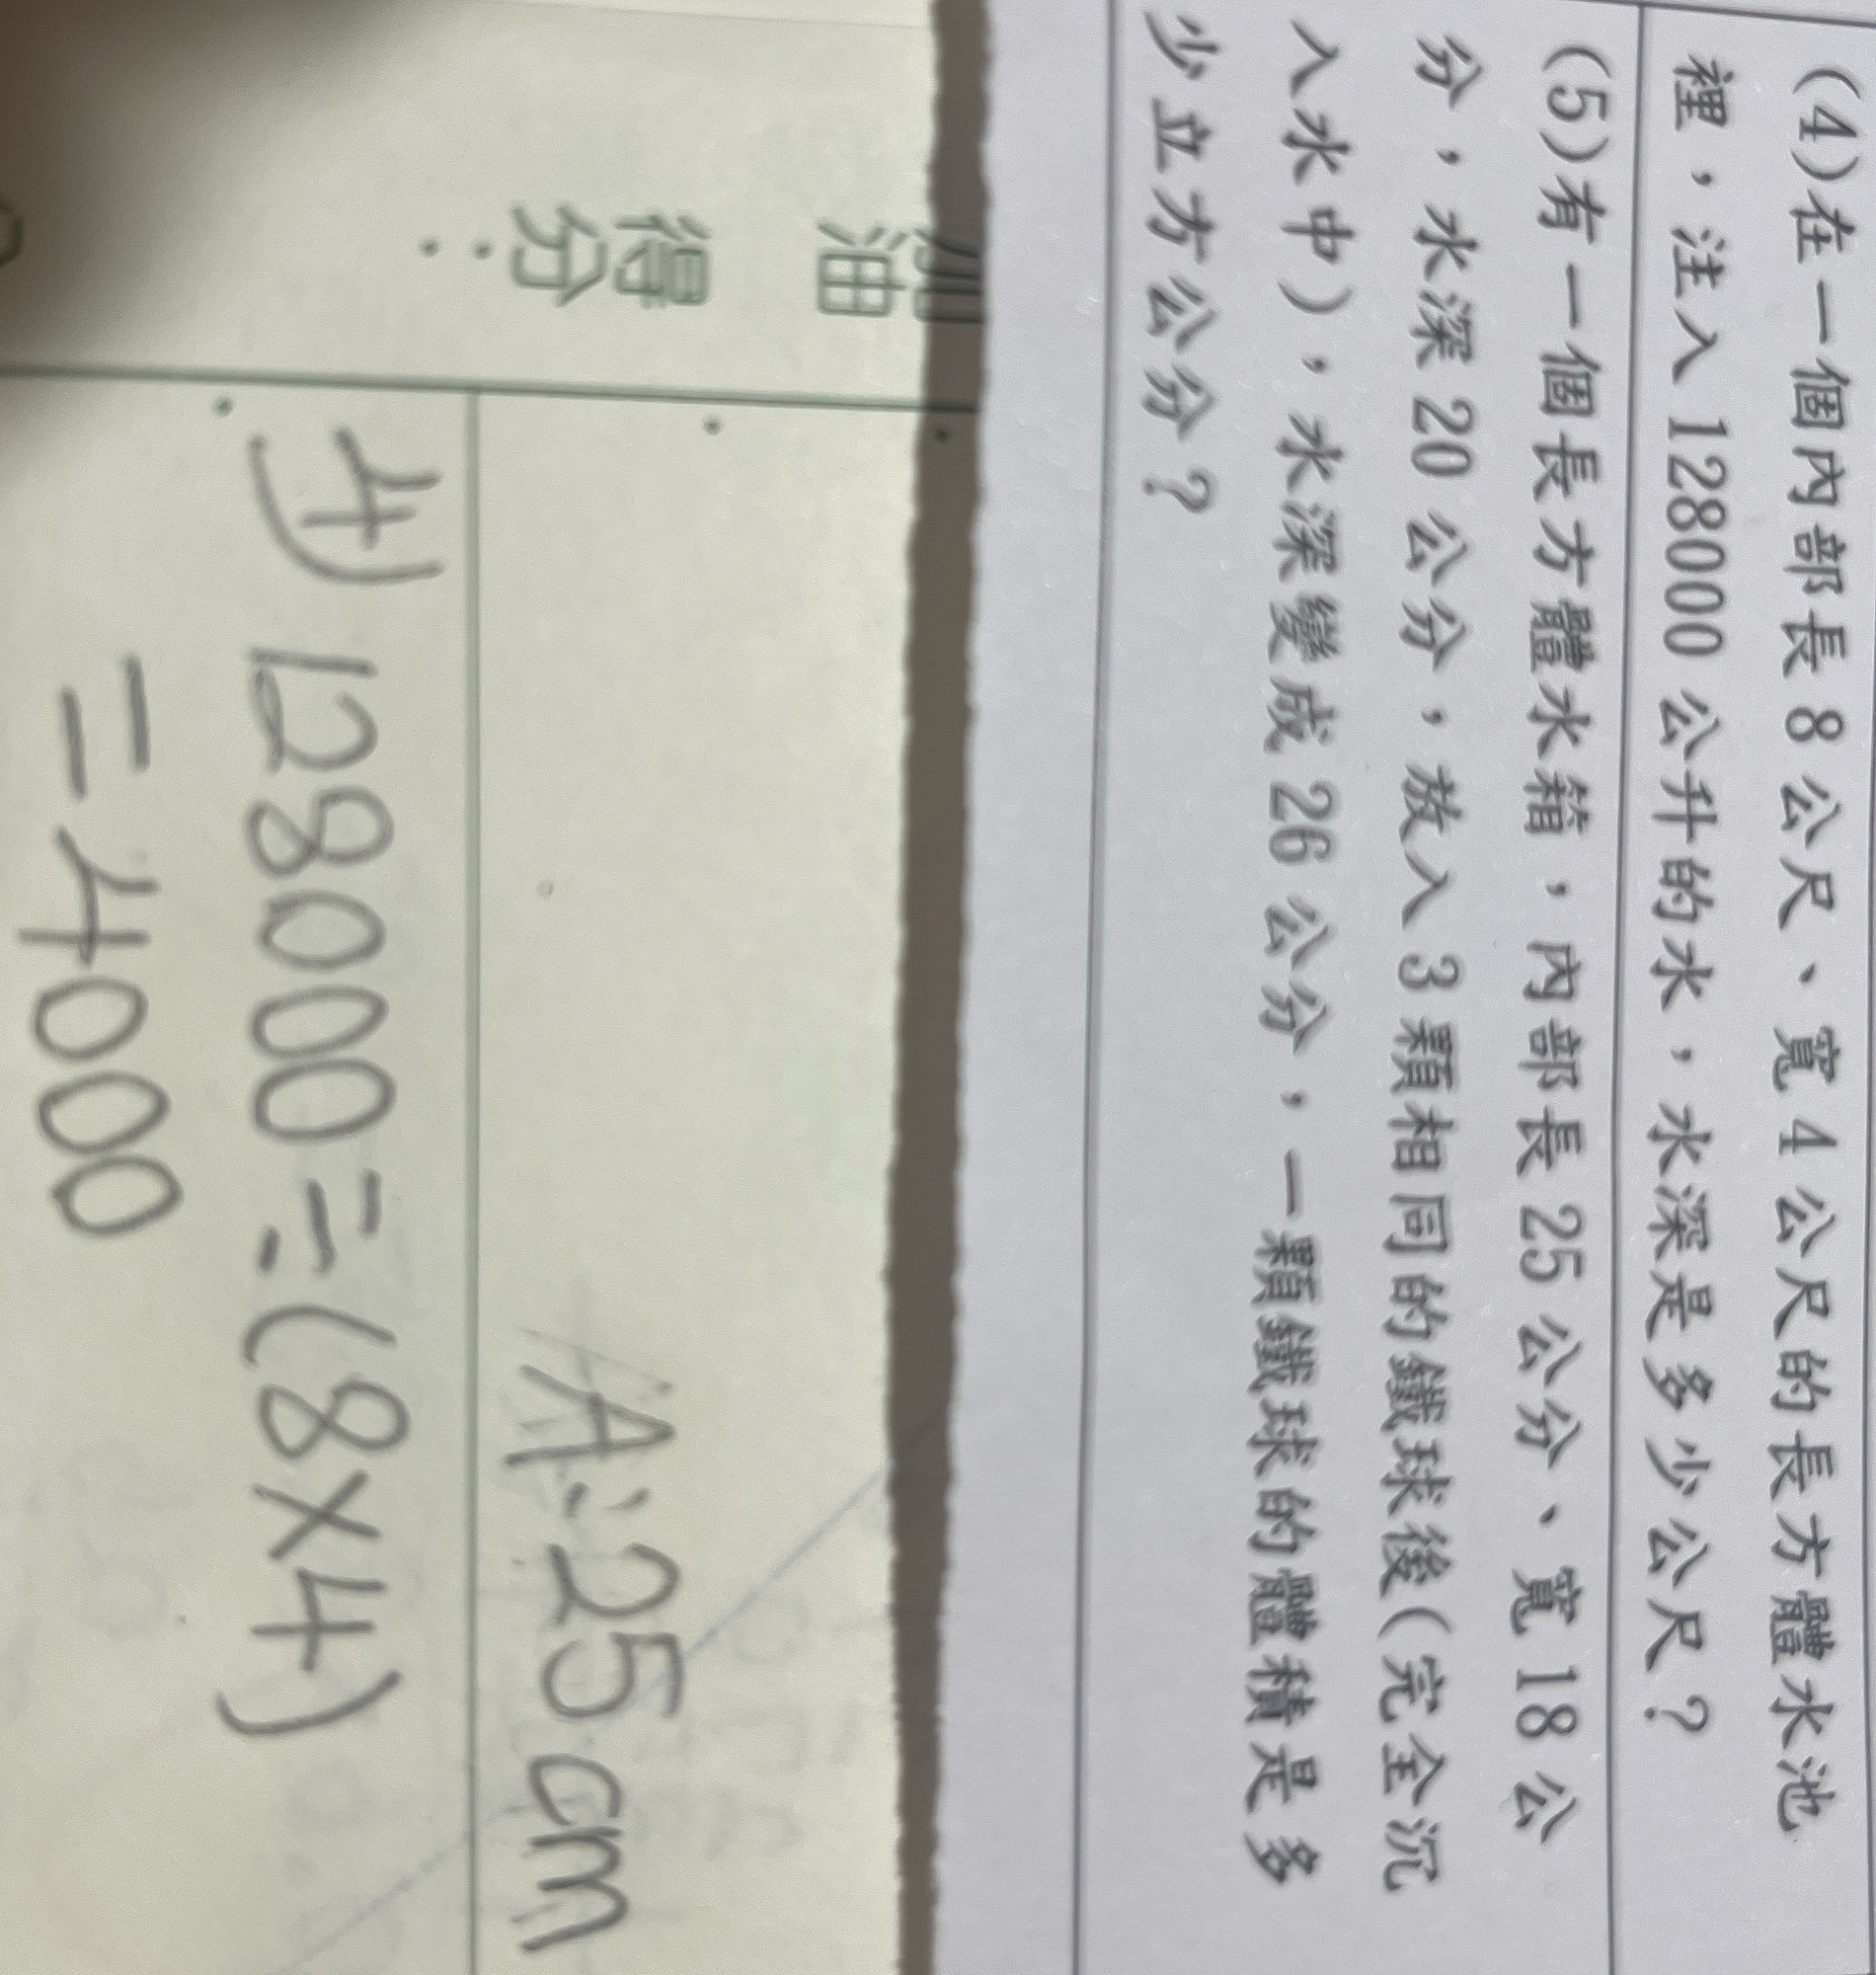 (4)在一個內部長 8 公尺、寬 4 公尺的長方體水池
裡，注入 128000 公升的水，水深是多少公尺？
(5)有一個長方體水箱，內部長 25 公分、寬 18 公
分，水深 20 公分，放入 3 顆相同的鐵球後(完全沉
入水中)，水深變成 26 公分，一顆鐵球的體積是多
少立方公分？
加油
得分：
A:25cm
4) 128000=(8×4)
=4000